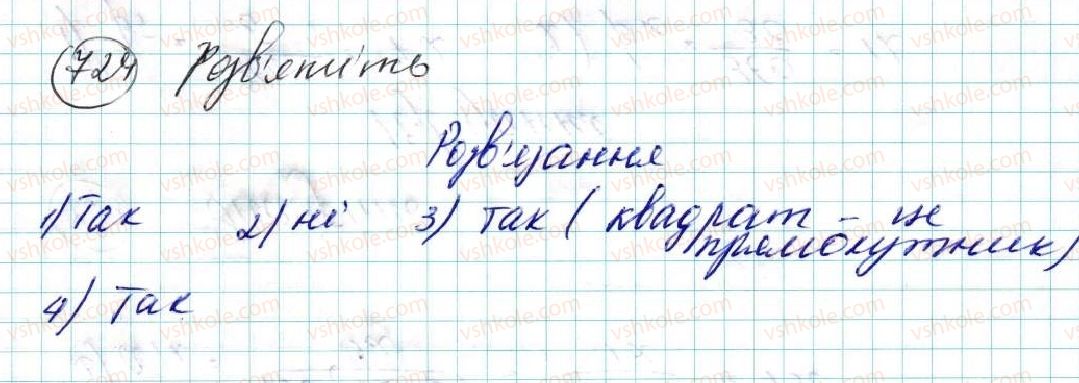 724 Розв'яжіть
Розв'язання
1) Так 2) ні 3) так (квадрат - це прямокутник)
4) Так